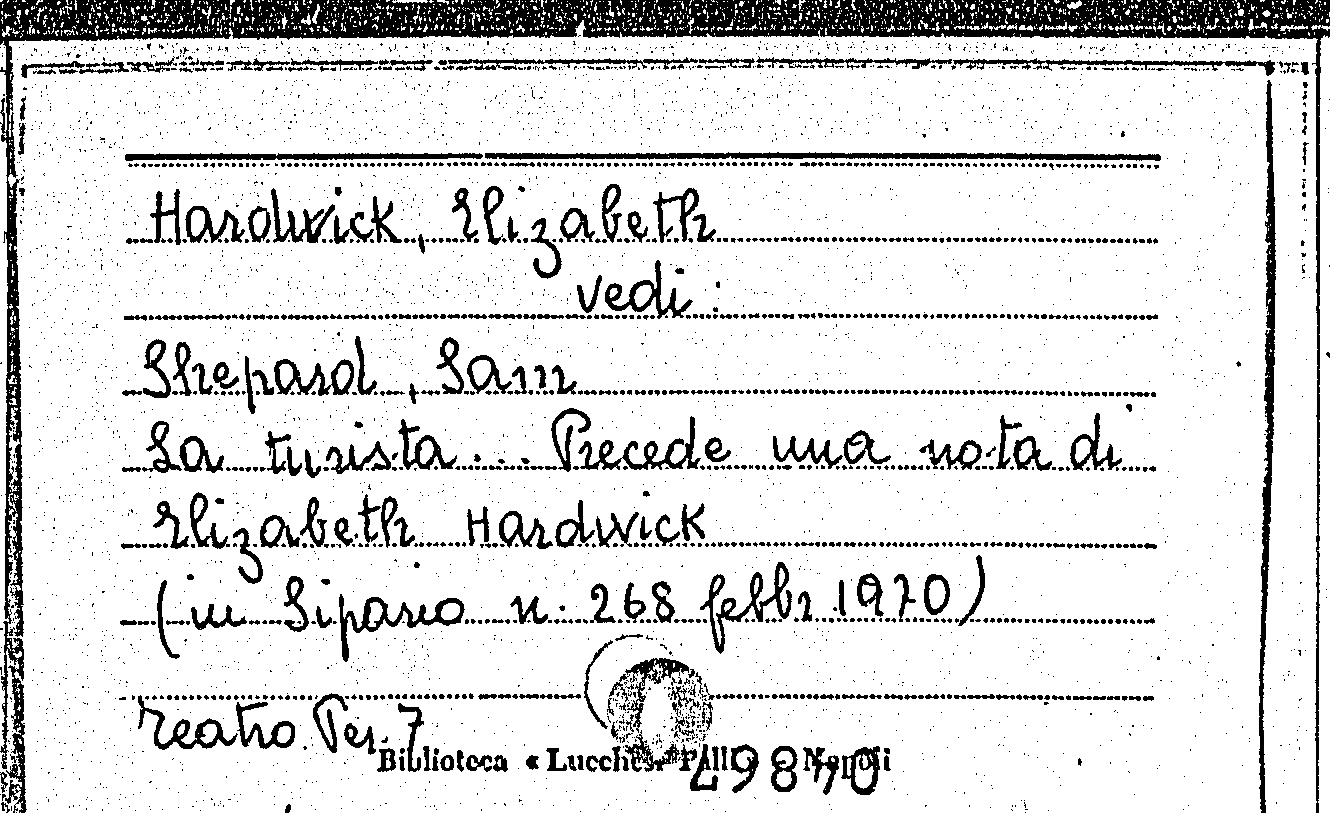 Hardwick, Elizabeth
vedi:
Shepard, Sam
La turista... Precede una nota di
Elizabeth Hardwick
(in Sipario n. 268 febbr 1970)
Teatro Per. 7
Biblioteca « Lucchesi Palli » Napoli